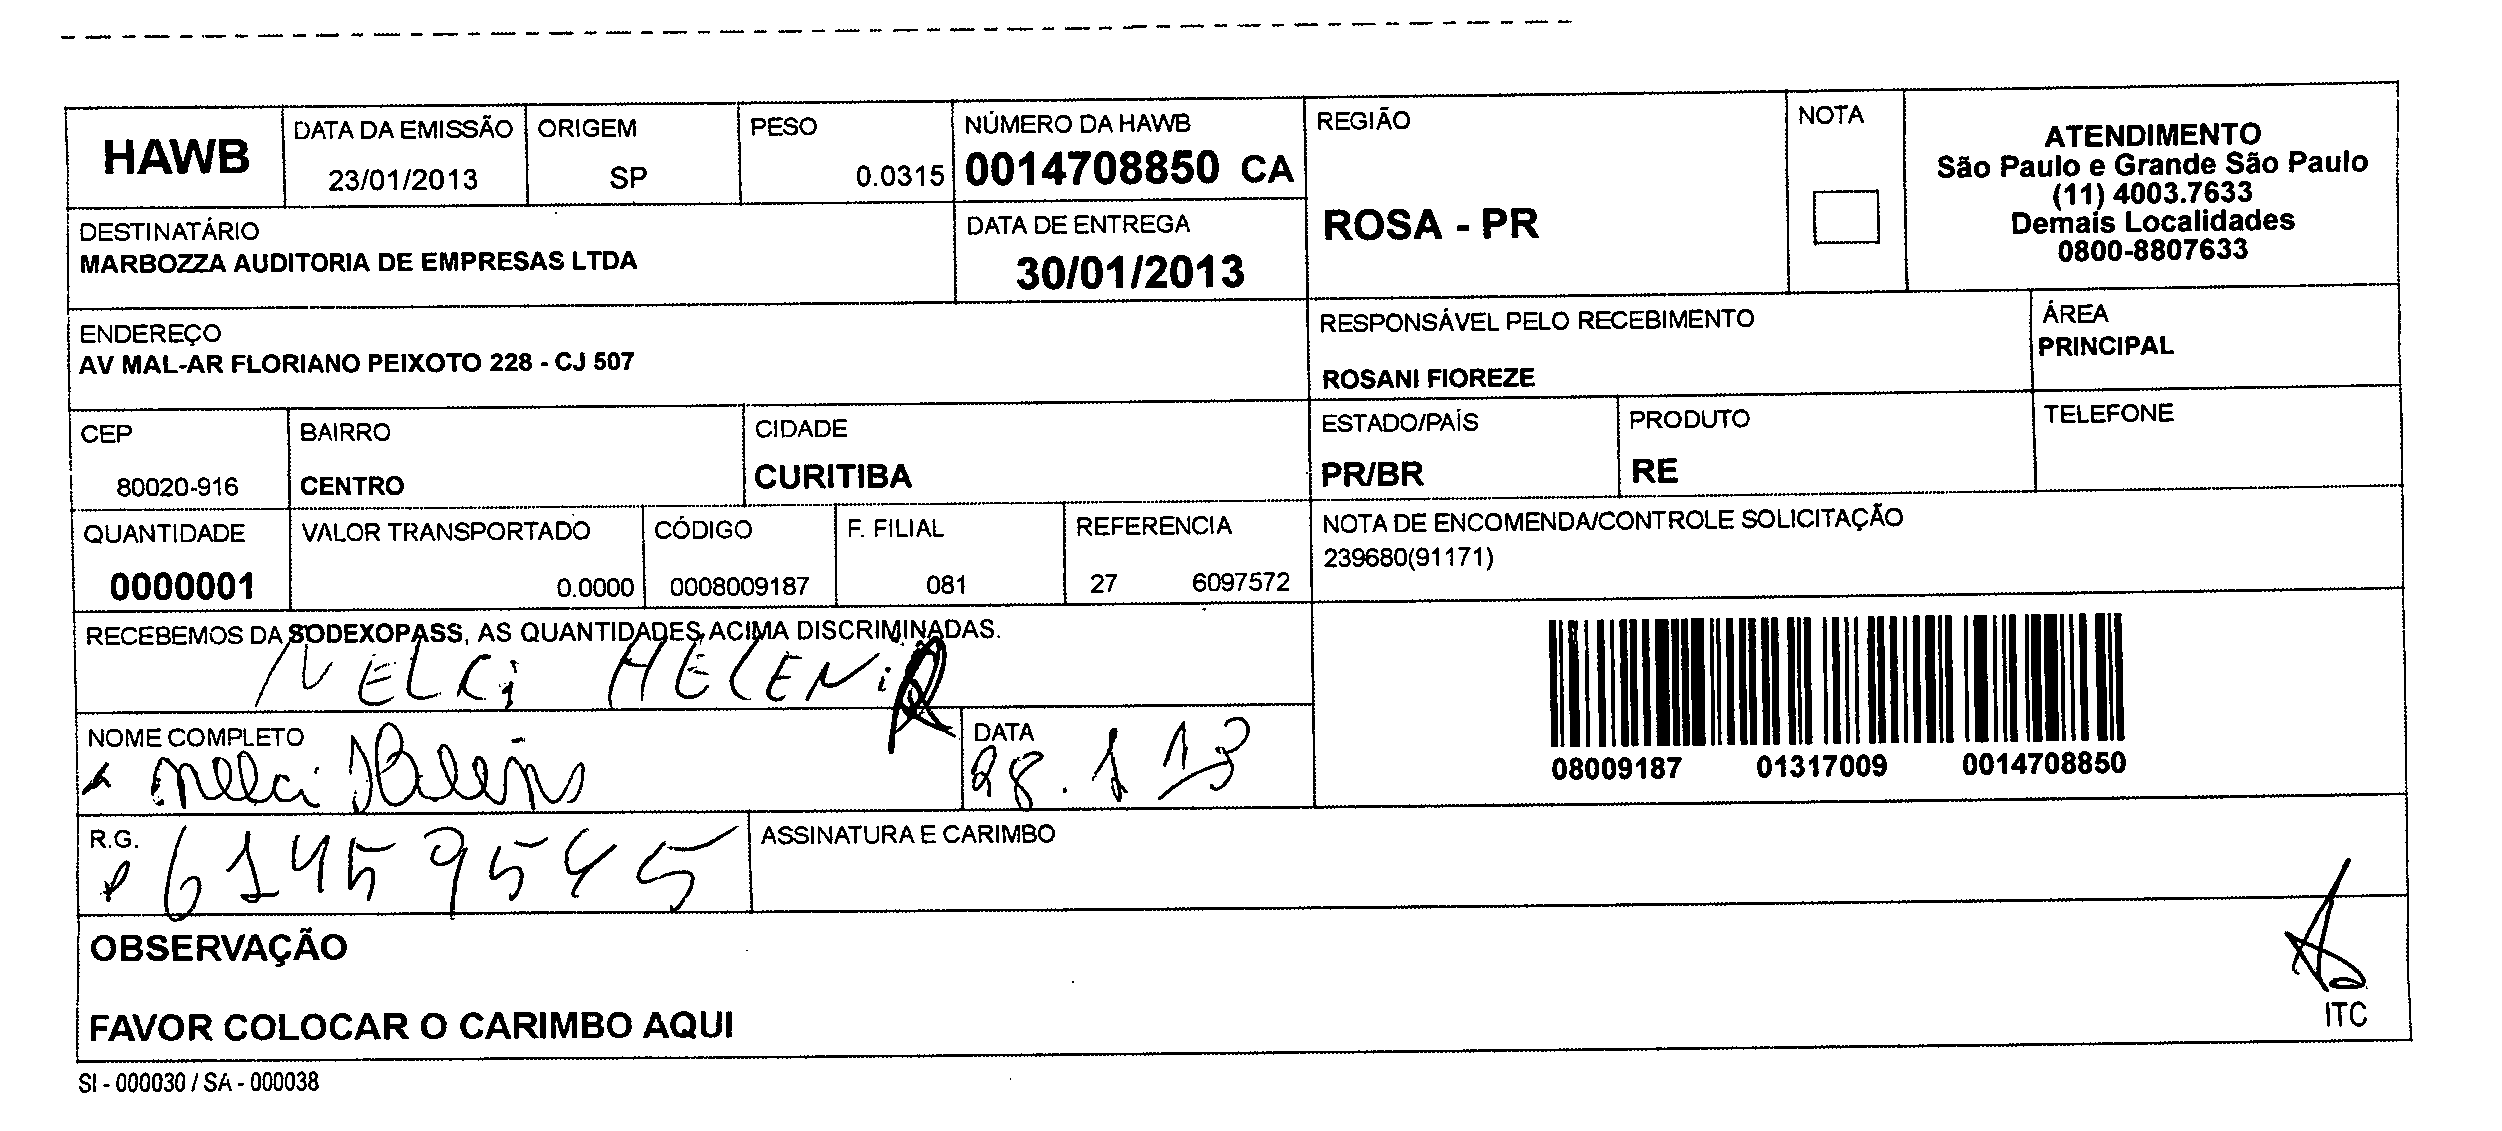 HAWB
DATA DA EMISSÃO
23/01/2013
ORIGEM
SP
PESO
0.0315
NÚMERO DA HAWB
0014708850 CA
REGIÃO
ROSA - PR
NOTA
ATENDIMENTO
São Paulo e Grande São Paulo
(11) 4003.7633
Demais Localidades
0800-8807633
DESTINATÁRIO
MARBOZZA AUDITORIA DE EMPRESAS LTDA
DATA DE ENTREGA
30/01/2013
ENDEREÇO
AV MAL-AR FLORIANO PEIXOTO 228 - CJ 507
RESPONSÁVEL PELO RECEBIMENTO
ROSANI FIOREZE
ÁREA
PRINCIPAL
CEP
80020-916
BAIRRO
CENTRO
CIDADE
CURITIBA
ESTADO/PAÍS
PR/BR
PRODUTO
RE
TELEFONE
QUANTIDADE
0000001
VALOR TRANSPORTADO
0.0000
CÓDIGO
0008009187
F. FILIAL
081
REFERENCIA
27 6097572
NOTA DE ENCOMENDA/CONTROLE SOLICITAÇÃO
239680(91171)
RECEBEMOS DA SODEXOPASS, AS QUANTIDADES ACIMA DISCRIMINADAS.
NELCi HELENiR
08009187 01317009 0014708850
NOME COMPLETO
Nelci
DATA
28.1 13
R.G.
61459545
ASSINATURA E CARIMBO
OBSERVAÇÃO
FAVOR COLOCAR O CARIMBO AQUI
ITC
SI - 000030 / SA - 000038